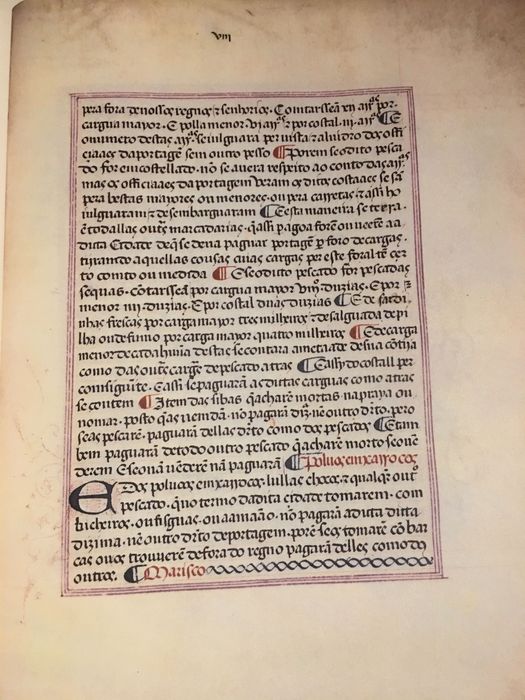 viii
pera fora de nossos regnos & senhorios. Contarssea em
cargua mayor. E polla menor. vi. & por costal. iii. ¶ E
o numero destas se iulguara per vista & aluidro dos offi
ciaaes da portagē sem outro pesso ¶ Porem se o dito pesca
do for encostellado. nō se auera respeito ao conto das
mas os officiaaes da portagem veram os ditos costaaes se sā
pera bestas mayores ou menores. ou pera carretas. & assi ho
iulguaram & desembarguaram ¶ E esta maneira se tera.
ē todallas out's marcadarias. q̄ assi pagoa forē ou veerē aa
dita Cidade de q̄ se deua paguar portagē p̱ foro de cargas.
tirando aquellas cousas cuias cargas per este foral tē cer
to conto ou medida ¶ E se o dito pescado for pescadas
sequas. cōtarsseā por cargua mayor viij. duzias. E por
menor iiij. duzias. E por costal duas duzias ¶ E de sardi
nhas frescas por carga mayor tres milheiros & de salguada de pi
lha ou de fumo por carga mayor. quatro milheiros ¶ E de carga
menor de cada hūa destas se contara a metade de sua cōtija
como das out's cargᵉ de pescado atras ¶ E assy do costall per
conseguīte. E assi se paguarā as dictas carguas como atras
se contem ¶ Item das sibas q̄ acharē mortas na praya ou
no mar. posto q̄ as vemdā. nō pagarā dr̄ᵒ. nē outro drt̄o. pero
se as pescarē. paguarā dellas drt̄o como dos pescados ¶ E tam
bem paguarā de todo outro pescado q̄ acharē morto se o ve
derem E se o nā vēderē nā paguarā ¶ Poluos emxarrocos
E Dos poluos emxarrocos. lullas chocos. & qualqr̄ outᵒ
pescado. que no termo da dita cidade tomarem. com
bicheiros. ou fisguas. ou aa maāo. nō pagarā a dita ditta
dizima. nē outro drt̄o de portagem. porē se os tomarē cō bar
cas ou os trouverē de fora do regno pagarā delles como dos
outros. ¶ Marisco